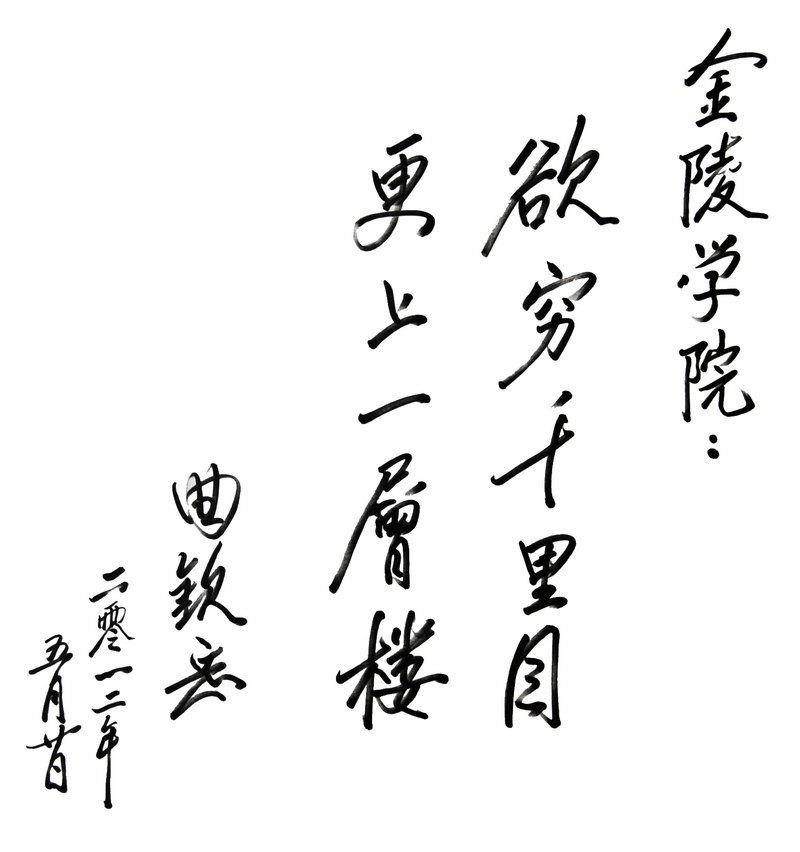 金陵学院：
欲穷千里目
更上一層楼
曲钦岳
二零一二年
五月廿日